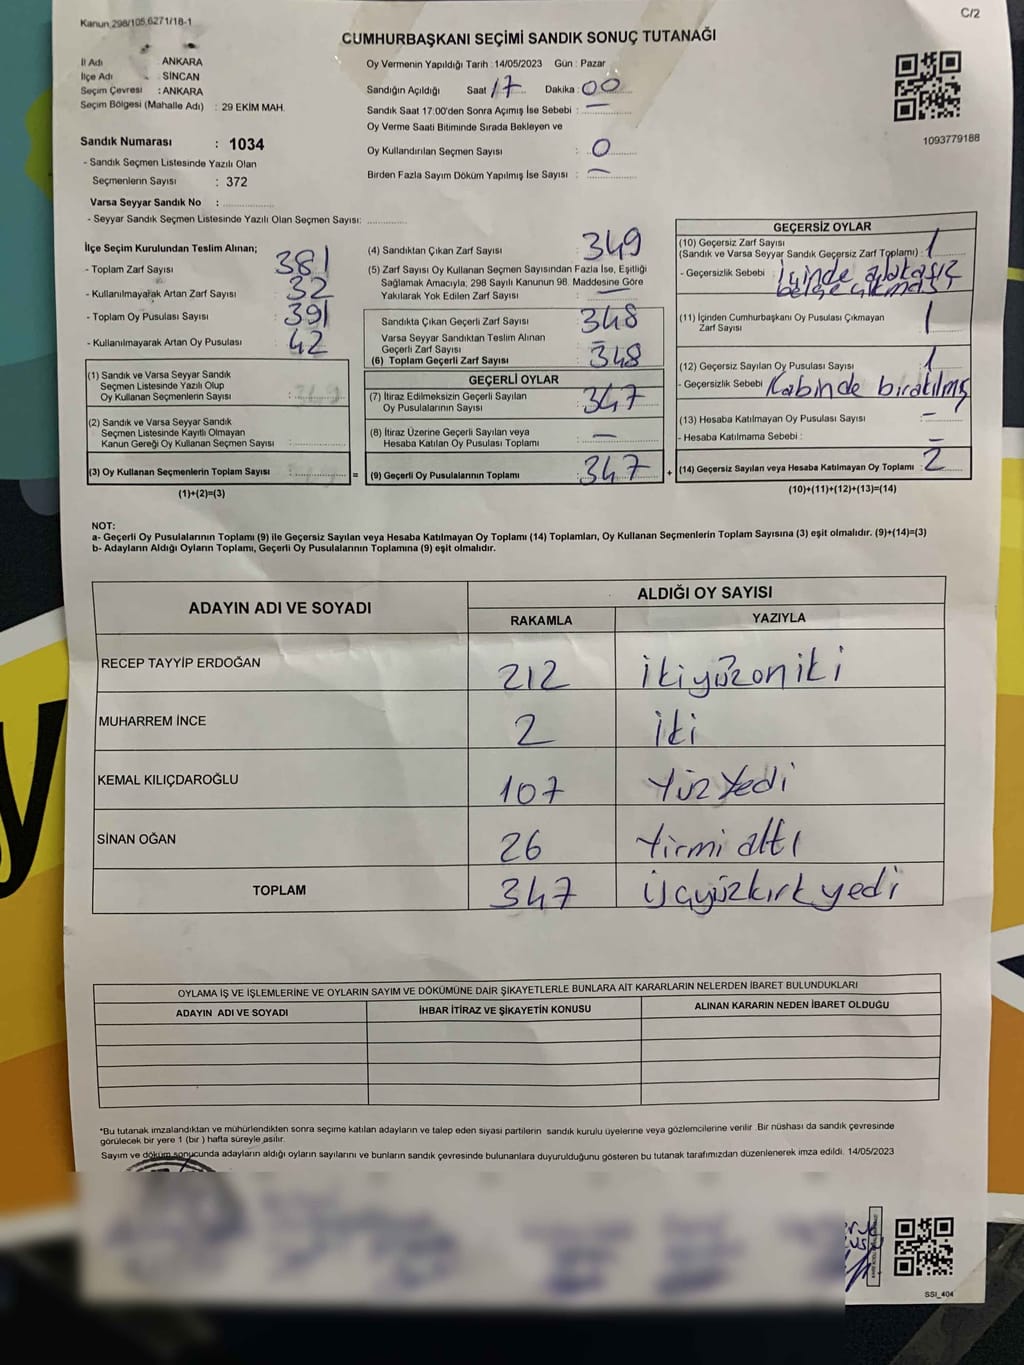 Kanun 298/105,6271/18-1
C/2
CUMHURBAŞKANI SEÇİMİ SANDIK SONUÇ TUTANAĞI
İl Adı ANKARA
İlçe Adı SİNCAN
Seçim Çevresi : ANKARA
Seçim Bölgesi (Mahalle Adı) : 29 EKİM MAH.
Sandık Numarası : 1034
- Sandık Seçmen Listesinde Yazılı Olan
Seçmenlerin Sayısı : 372
Varsa Seyyar Sandık No :
- Seyyar Sandık Seçmen Listesinde Yazılı Olan Seçmen Sayısı:
Oy Vermenin Yapıldığı Tarih : 14/05/2023 Gün : Pazar
Sandığın Açıldığı Saat 17 Dakika : 00
Sandık Saat 17:00'den Sonra Açımış İse Sebebi : —
Oy Verme Saati Bitiminde Sırada Bekleyen ve
Oy Kullandırılan Seçmen Sayısı : 0
Birden Fazla Sayım Döküm Yapılmış İse Sayısı : —
1093779188
İlçe Seçim Kurulundan Teslim Alınan;
- Toplam Zarf Sayısı 381
- Kullanılmayarak Artan Zarf Sayısı 32
- Toplam Oy Pusulası Sayısı 391
- Kullanılmayarak Artan Oy Pusulası 42
(1) Sandık ve Varsa Seyyar Sandık
Seçmen Listesinde Yazılı Olup
Oy Kullanan Seçmenlerin Sayısı :
(2) Sandık ve Varsa Seyyar Sandık
Seçmen Listesinde Kayıtlı Olmayan
Kanun Gereği Oy Kullanan Seçmen Sayısı :
(3) Oy Kullanan Seçmenlerin Toplam Sayısı : =
(1)+(2)=(3)
(4) Sandıktan Çıkan Zarf Sayısı : 349
(5) Zarf Sayısı Oy Kullanan Seçmen Sayısından Fazla İse, Eşitliği
Sağlamak Amacıyla; 298 Sayılı Kanunun 98. Maddesine Göre
Yakılarak Yok Edilen Zarf Sayısı : —
Sandıkta Çıkan Geçerli Zarf Sayısı : 348
Varsa Seyyar Sandıktan Teslim Alınan
Geçerli Zarf Sayısı : —
(6) Toplam Geçerli Zarf Sayısı : 348
GEÇERLİ OYLAR
(7) İtiraz Edilmeksizin Geçerli Sayılan
Oy Pusulalarının Sayısı : 347
(8) İtiraz Üzerine Geçerli Sayılan veya
Hesaba Katılan Oy Pusulası Toplamı : —
(9) Geçerli Oy Pusulalarının Toplamı : 347 +
GEÇERSİZ OYLAR
(10) Geçersiz Zarf Sayısı
(Sandık ve Varsa Seyyar Sandık Geçersiz Zarf Toplamı) : 1
- Geçersizlik Sebebi : İçinde alakasız
belge çıkması
(11) İçinden Cumhurbaşkanı Oy Pusulası Çıkmayan
Zarf Sayısı : 1
(12) Geçersiz Sayılan Oy Pusulası Sayısı : 1
- Geçersizlik Sebebi Kabinde bıratılmış
(13) Hesaba Katılmayan Oy Pusulası Sayısı : —
- Hesaba Katılmama Sebebi : —
(14) Geçersiz Sayılan veya Hesaba Katılmayan Oy Toplamı : 2
(10)+(11)+(12)+(13)=(14)
NOT:
a- Geçerli Oy Pusulalarının Toplamı (9) ile Geçersiz Sayılan veya Hesaba Katılmayan Oy Toplamı (14) Toplamları, Oy Kullanan Seçmenlerin Toplam Sayısına (3) eşit olmalıdır. (9)+(14)=(3)
b- Adayların Aldığı Oyların Toplamı, Geçerli Oy Pusulalarının Toplamına (9) eşit olmalıdır.
ADAYIN ADI VE SOYADI
ALDIĞI OY SAYISI
RAKAMLA YAZIYLA
RECEP TAYYİP ERDOĞAN 212 ikiyüzoniki
MUHARREM İNCE 2 İki
KEMAL KILIÇDAROĞLU 107 Yüz Yedi
SİNAN OĞAN 26 Yirmi altı
TOPLAM 347 Üçyüzkırk yedi
OYLAMA İŞ VE İŞLEMLERİNE VE OYLARIN SAYIM VE DÖKÜMÜNE DAİR ŞİKAYETLERLE BUNLARA AİT KARARLARIN NELERDEN İBARET BULUNDUKLARI
ADAYIN ADI VE SOYADI İHBAR İTİRAZ VE ŞİKAYETİN KONUSU ALINAN KARARIN NEDEN İBARET OLDUĞU
*Bu tutanak imzalandıktan ve mühürlendikten sonra seçime katılan adayların ve talep eden siyasi partilerin sandık kurulu üyelerine veya gözlemcilerine verilir. Bir nüshası da sandık çevresinde
görülecek bir yere 1 (bir ) hafta süreyle asılır.
Sayım ve döküm sonucunda adayların aldığı oyların sayılarını ve bunların sandık çevresinde bulunanlara duyurulduğunu gösteren bu tutanak tarafımızdan düzenlenerek imza edildi. 14/05/2023
SSI_404